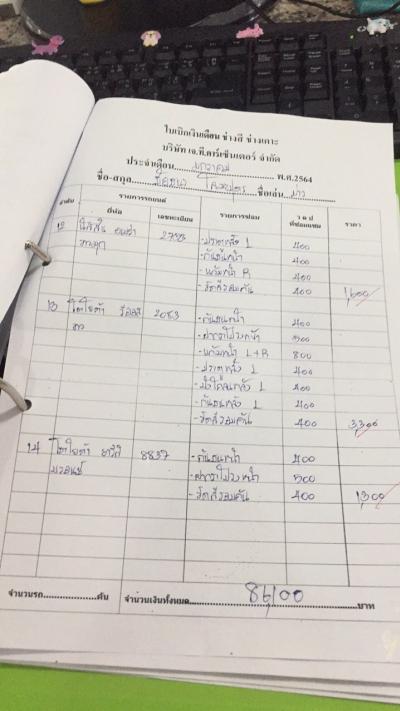 ใบเบิกเงินเดือน ช่างสี ช่างเคาะ
บริษัท เจ.ที.คาร์เซ็นเตอร์ จำกัด
ประจำเดือน มกราคม พ.ศ.2564
ชื่อ-สกุล ชื่อเล่น
ลำดับ รายการรถยนต์ รายการซ่อม ว ด ป ที่ซ่อมแซม ราคา
ยี่ห้อ เลขทะเบียน
12 นิสสัน -ประตูหลัง L 400
-กันชนหน้า 400
-แก้มหน้า R 400
-ขัดสีรอบคัน 400 1,600
13 โตโยต้า 2083 -กันชนหน้า 400
-ฝากระโปรงหน้า 500
-แก้มหน้า L+R 800
-ประตูหลัง L 400
-บังโคลนหลัง L 400
-กันชนหลัง L 400
-ขัดสีรอบคัน 400 3,300
14 โตโยต้า 8837 -กันชนหน้า 400
-ฝากระโปรงหน้า 500
-ขัดสีรอบคัน 400 1,300
จำนวนรถ คัน จำนวนเงินทั้งหมด 86,100 บาท